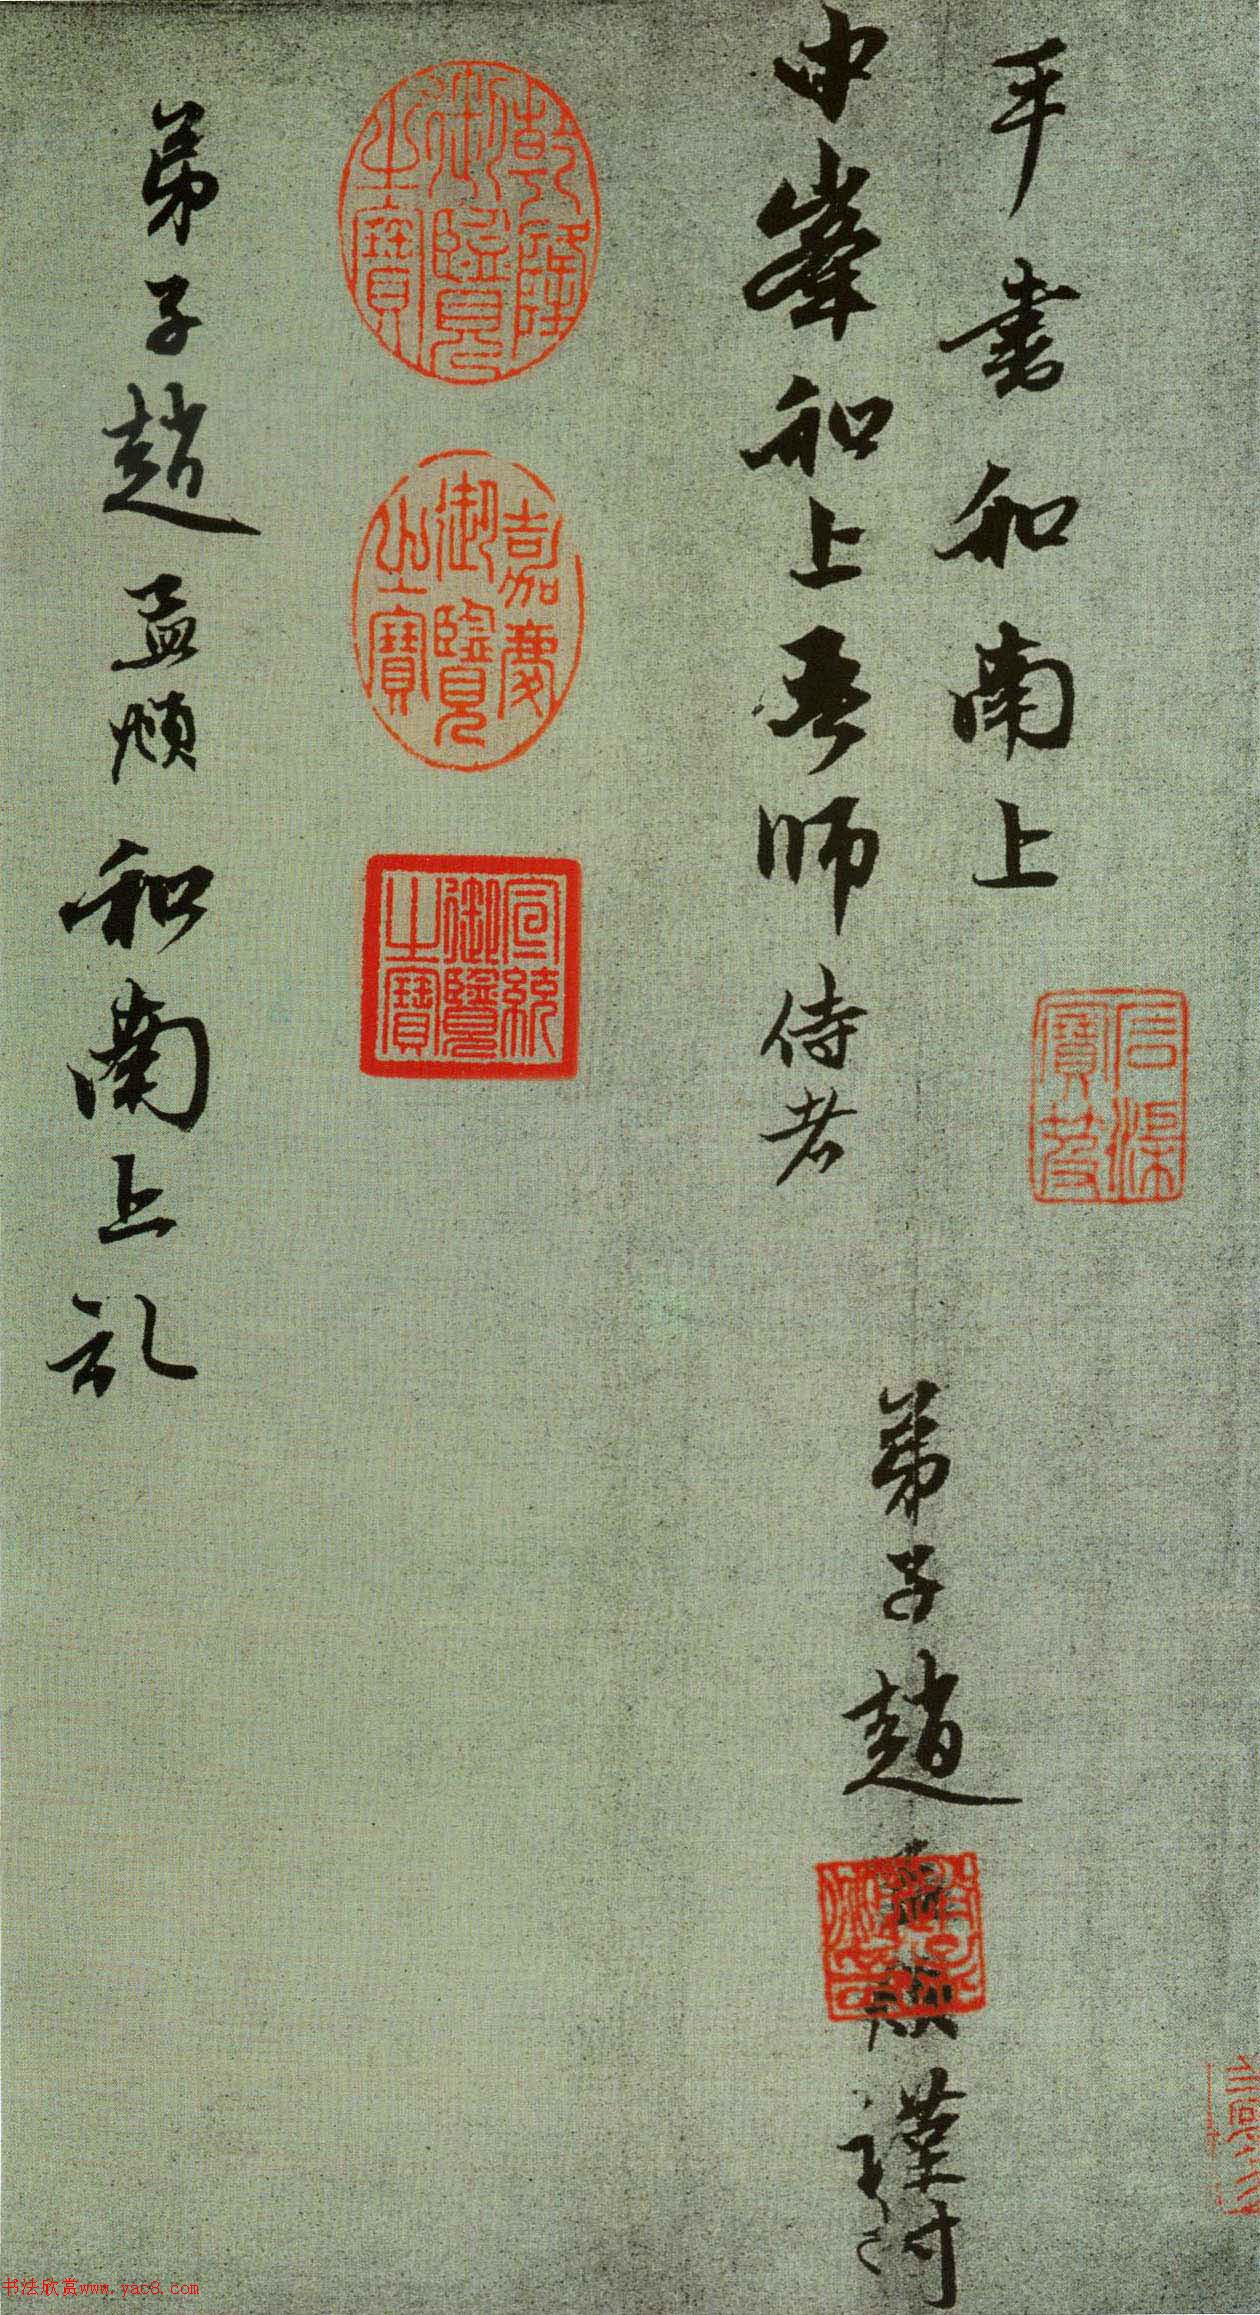 手書和南上
石渠寶笈
中峯和上吾師侍者
弟子趙孟頫謹封
趙氏子昂
乾隆御覽之寶
嘉慶御覽之寶
宣統御覽之寶
弟子趙孟頫和南上
书法欣赏www.yac8.com